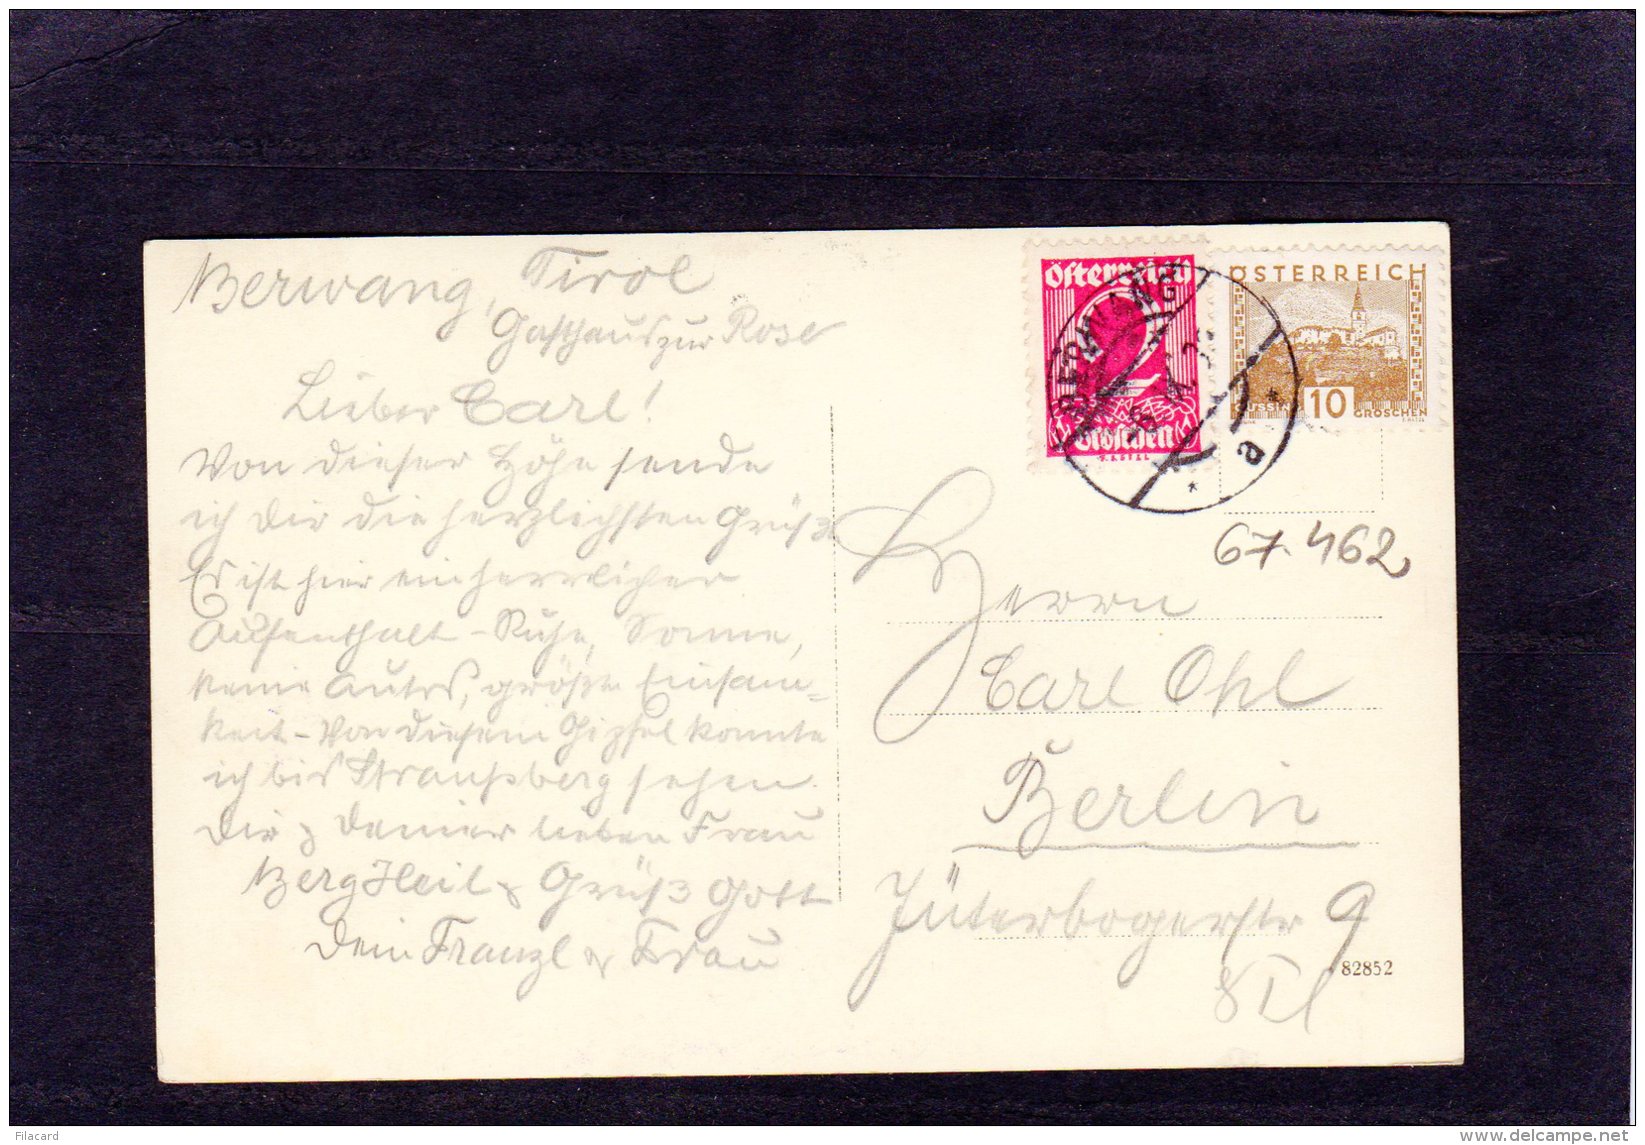 Berwang, Tirol
Gasthaus zur Rose
Lieber Carl!
Von dieser Höhe sende
ich Dir die herzlichsten Grüße
Es ist hier ein herrlicher
Aufenthalt - Ruhe, Sonne,
keine Autos, größte Einsam=
keit - Von diesem Gipfel konnte
ich bis Straußberg sehen.
Dir & Deiner lieben Frau
Berg Heil & Grüß Gott
Dein Franzl & Frau
Österreich
2
Groschen
ÖSTERREICH
10
GROSCHEN
BERWANG
a
67.462
Herrn
Carl Ohl
Berlin
Jüterbogerstr 9
82852
Filacard
www.delcampe.net